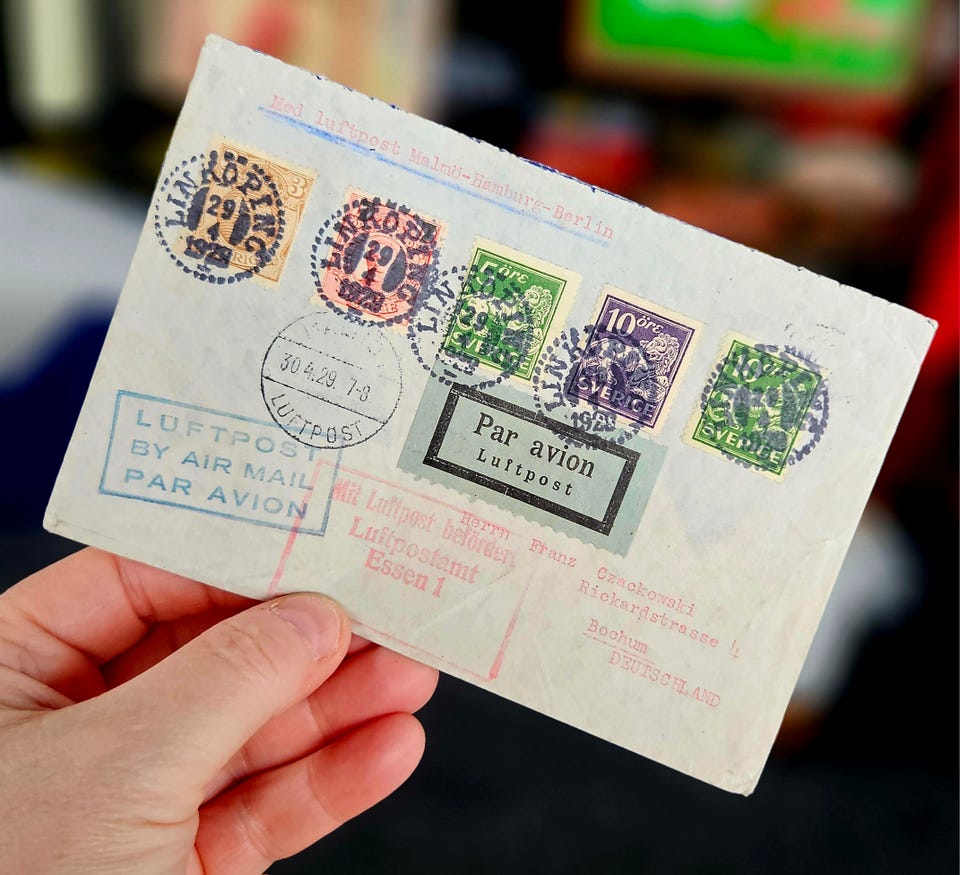 Med luftpost Malmö-Hamburg-Berlin
LINKÖPING
29
4
1929
3
LINKÖPING
29
4
1929
LINKÖPING
5 öre
29
SVERIGE
LINKÖPING
10 öre
SVERIGE
1929
10
SVERIGE
30.4.29. 7-8
LUFTPOST
LUFTPOST
BY AIR MAIL
PAR AVION
Par avion
Luftpost
Mit Luftpost befördert
Luftpostamt
Essen 1
Herrn Franz Czackowski
Rickardstrasse 4
Bochum
DEUTSCHLAND